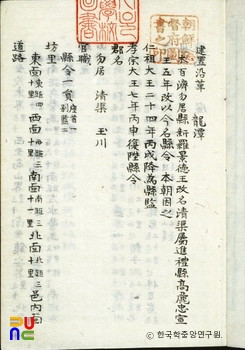 龍潭
建置沿革
本百濟勿居縣新羅景德王改名淸渠屬進禮縣高麗忠宣
王五年改以今名縣令 本朝因之
仁祖大王二十四年丙戌降爲縣監
孝宗大王七年丙申復陞縣令
郡名
勿居 淸渠 玉川
官職
縣令一員 座首一
坊里
東面 西面 南面 北面 邑內面
道路
朝鮮總督府圖書之印
© 한국학중앙연구원.